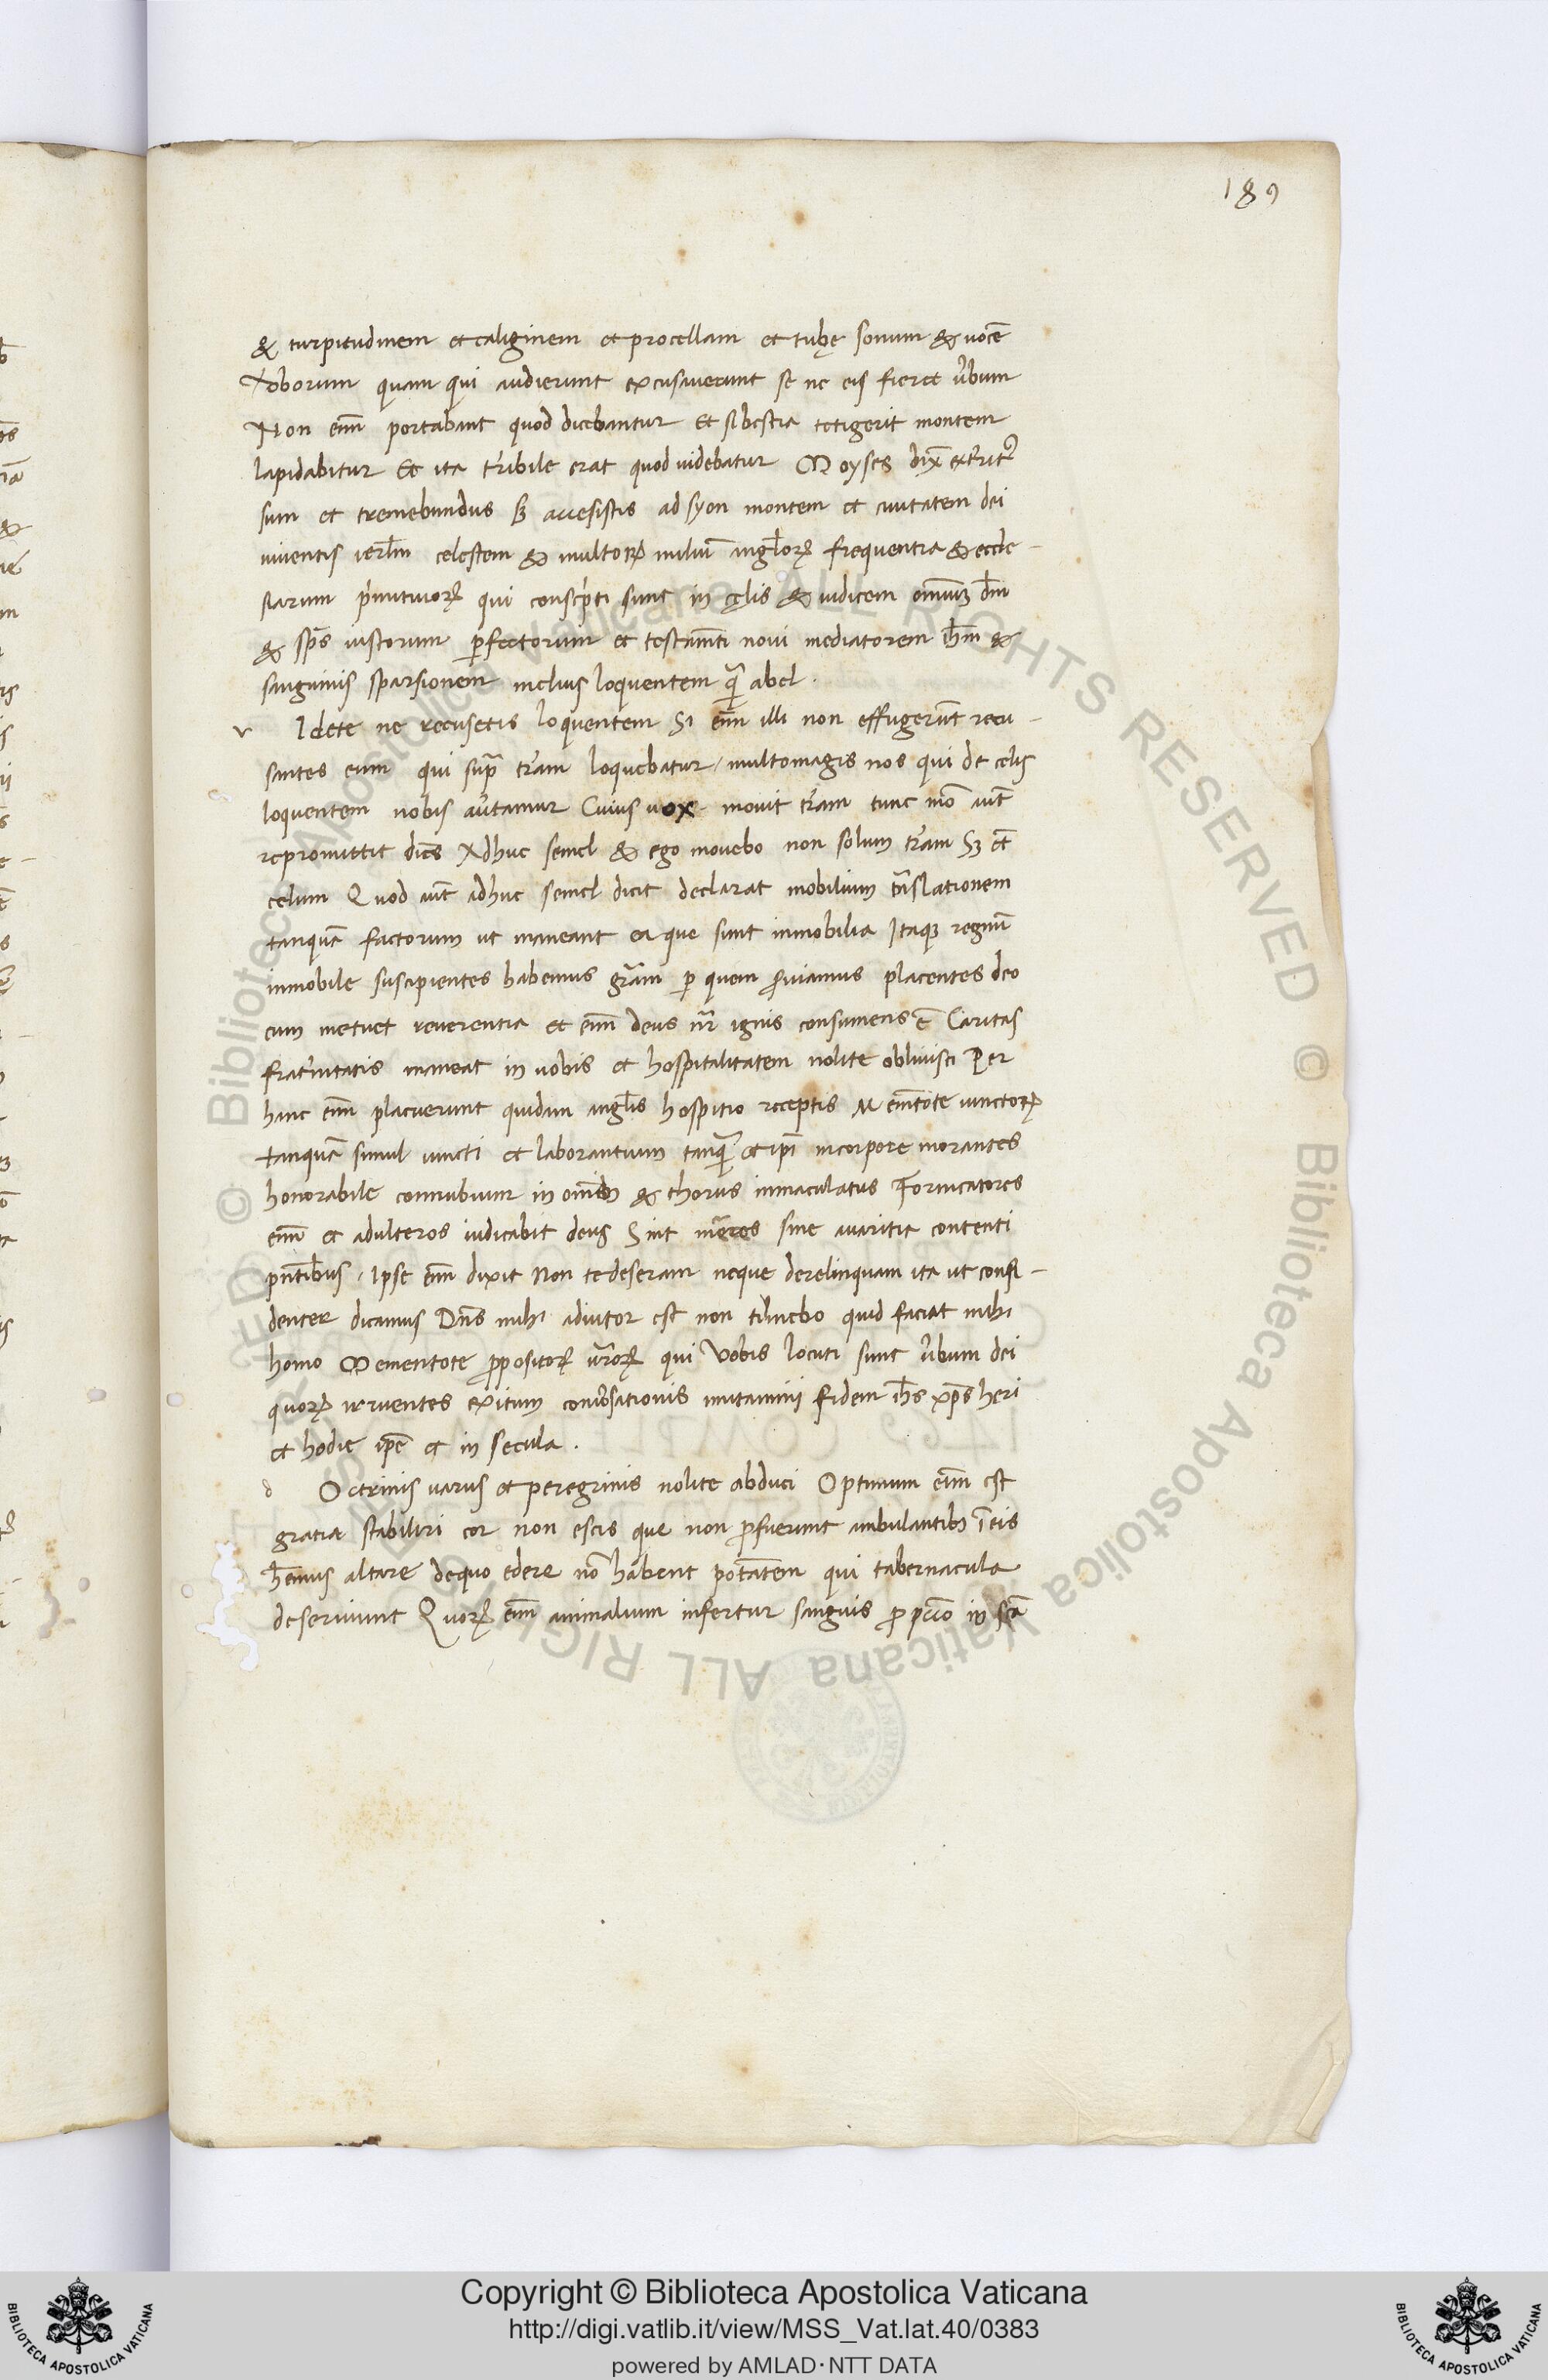 189
& turpitudinem et caliginem et procellam et tubę sonum & uocē
Xoborum quam qui audierunt excusauerunt se ne eis fieret ūbum
Non enī portabant quod dicebantur Et si bestia tetigerit montem
lapidabitur Et ita tr̄ribile erat quod uidebatur Moyses dix̄
sum et tremebundus sȝ accesistis ad syon montem et ciuitatem dei
uiuentis ierl̄m celestem & multoꝝ miliū angl̄oꝝ frequentia & eccle-
siarum p̄mitiuoꝝ qui consc̄pti sunt in cęlis & iudicem omniuȝ dm̄
& sp̄s iustorum ꝑfectorum et testamn̄ti noui mediatorem ih̄m &
sanguinis sparsionem melius loquentem q̄ abel.
v Idete ne recusetis loquentem Si enī illi non effugerūt recu-
santes eum qui sup̄ tr̄am loquebatur, multomagis nos qui de celis
loquentem nobis aūtamur Cuius uox mouit tr̄am tunc mō aūt
repromittit dīcs Adhuc semel & ego mouebo non solum tr̄am Sȝ et̄
celum Quod aūt adhuc semel dicit declarat mobilium trāslationem
tanquā factorum ut maneant ea que sunt inmobilia Itaqȝ regnū
inmobile suscipientes habemus gr̄am ꝑ quem placentes deo
cum metuet reuerentia et enī deus nr̄ ignis consumens ē Caritas
frat̄nitatis maneat in uobis et hospitalitatem nolite obliuisci Per
hanc enī placuerunt quidam angl̄is hospitio receptis Memtote uinctoꝝ
tanquā simul uincti et laborantium tanq̄ et ip̄i incorpore morantes
honorabile connubium in omībȝ & thorus inmaculatus Fornicatores
enī et adulteros iudicabit deus Sint mores sine auaritia contenti
pn̄tibus. Ipse enī dixit Non te deseram neque derelinquam ita ut confi-
denter dicamus Dn̄s mihi adiutor est non timebo quid faciat mihi
homo Mementote ꝓpositoꝝ ur̄oꝝ qui Vobis locuti sunt ūbum dei
quoꝝ exitum conūsationis fidem ih̄s xp̄s heri
et hodie ip̄e et in secula.
d Octrinis uariis et peregrinis nolite abduci Optimum enī est
gratia stabiliri cor non escis que non ꝓfuerunt ambulantibȝ ī eis
h̄emus altare dequo edere nō habent potātem qui tabernacula
deseruiunt Quoꝝ enī animalium infertur sanguis ꝓ pcc̄o in sc̄a
© Biblioteca Apostolica Vaticana ALL RIGHTS RESERVED © Biblioteca Apostolica Vaticana ALL RIGHTS RESERVED
Copyright © Biblioteca Apostolica Vaticana
http://digi.vatlib.it/view/MSS_Vat.lat.40/0383
powered by AMLAD·NTT DATA
BIBLIOTECA APOSTOLICA VATICANA
BIBLIOTECA APOSTOLICA VATICANA